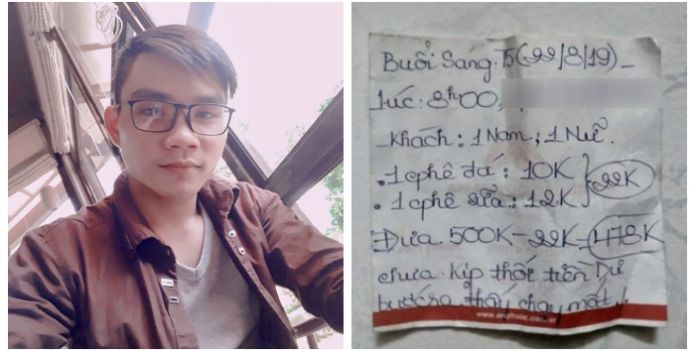 Buổi Sáng T5(22/8/19) -
lúc: 8h00,
- Khách: 1 Nam; 1 Nữ.
• 1 cphê đá: 10K
• 1 cphê sữa: 12K } 22K
Đưa 500K-22K=478K
chưa kịp thối tiền Dư
bước ra thấy chạy mất !
www.anphuoc.com.vn